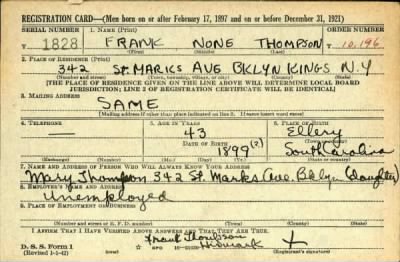 REGISTRATION CARD—(Men born on or after February 17, 1897 and on or before December 31, 1921)
SERIAL NUMBER 1. NAME (Print) ORDER NUMBER
1828 FRANK NONE THOMPSON 10,196
(First) (Middle) (Last)
2. PLACE OF RESIDENCE (Print)
342 St. MARKS AVE BKLYN KINGS N.Y
(Number and street) (Town, township, village, or city) (County) (State)
[THE PLACE OF RESIDENCE GIVEN ON THE LINE ABOVE WILL DETERMINE LOCAL BOARD
JURISDICTION; LINE 2 OF REGISTRATION CERTIFICATE WILL BE IDENTICAL]
3. MAILING ADDRESS
SAME
[Mailing address if other than place indicated on line 2. If same insert word same]
4. TELEPHONE 5. AGE IN YEARS 6. PLACE OF BIRTH
— 43 Ellery
DATE OF BIRTH (Town or county)
1899 (?) South Carolina
(Exchange) (Number) (Mo.) (Day) (Yr.) (State or country)
7. NAME AND ADDRESS OF PERSON WHO WILL ALWAYS KNOW YOUR ADDRESS
Mary Thompson 342 St. Marks Ave. Bklyn (daughter)
8. EMPLOYER'S NAME AND ADDRESS
Unemployed
9. PLACE OF EMPLOYMENT OR BUSINESS
(Number and street or R. F. D. number) (Town) (County) (State)
I AFFIRM THAT I HAVE VERIFIED ABOVE ANSWERS AND THAT THEY ARE TRUE.
Frank Thompson
D. S. S. Form 1 His mark X
(Revised 1-1-42) (over) (Registrant's signature)